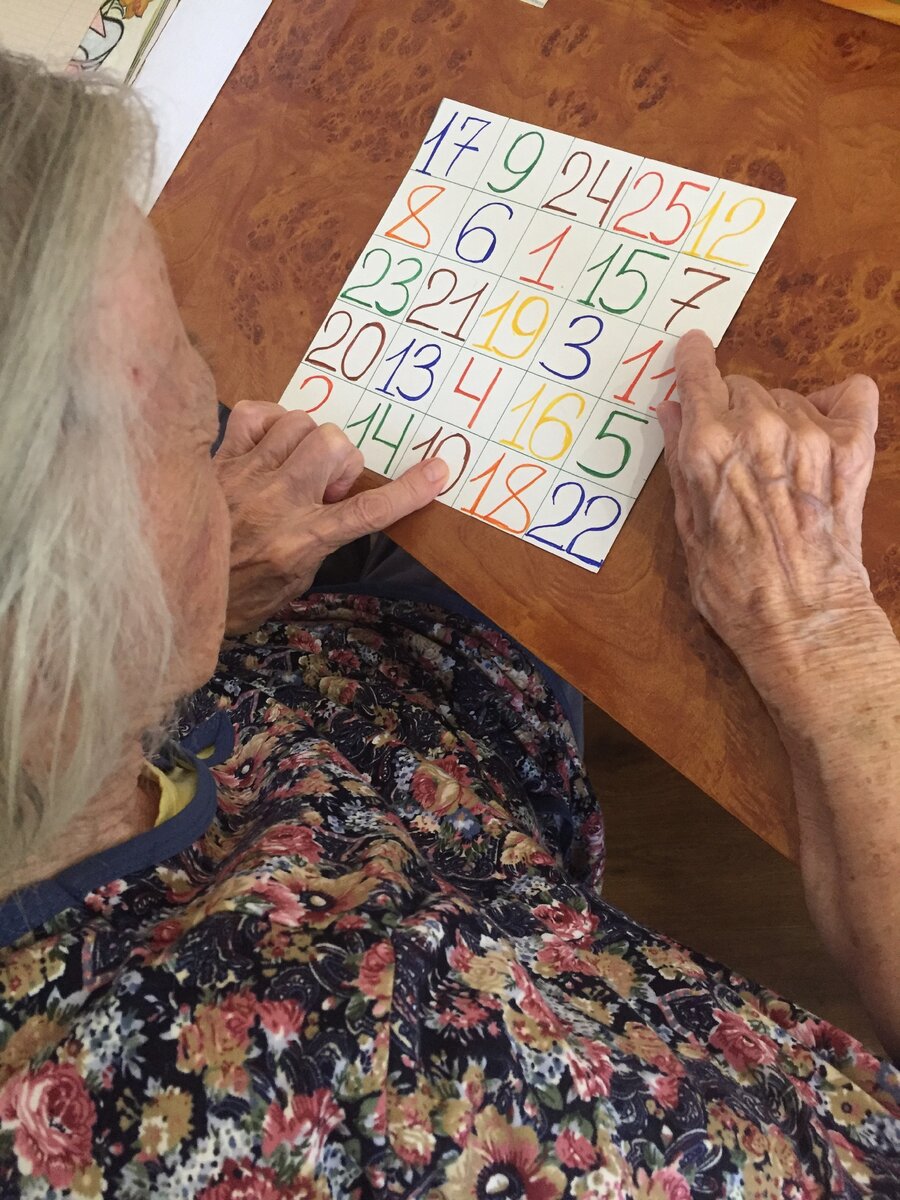 17 9 24 25 12
8 6 1 15 7
23 21 19 3 11
20 13 4 16 5
2 14 10 18 22